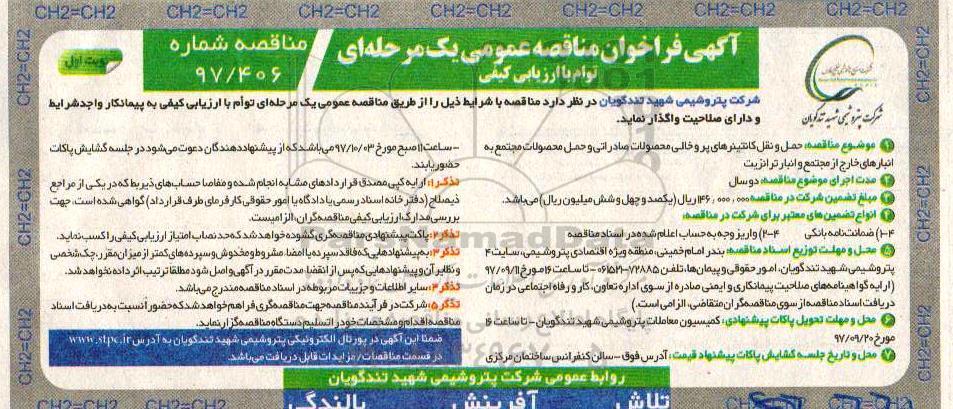 CH2=CH2 CH2=CH2 CH2=CH2 CH2=CH2 CH2=CH2 CH2=CH2 CH2=CH2
آگهی فراخوان مناقصه عمومی یک مرحله‌ای
توام با ارزیابی کیفی
مناقصه شماره
۹۷/۴۰۶
نوبت اول
شرکت پتروشیمی شهید تندگویان
شرکت پتروشیمی شهید تندگویان در نظر دارد مناقصه با شرایط ذیل را از طریق مناقصه عمومی یک مرحله‌ای توأم با ارزیابی کیفی به پیمانکار واجد شرایط
و دارای صلاحیت واگذار نماید.
۱ موضوع مناقصه: حمل و نقل کانتینرهای پر و خالی محصولات صادراتی و حمل محصولات مجتمع به
انبارهای خارج از مجتمع و انبار ترانزیت
۲ مدت اجرای موضوع مناقصه: دو سال
۳ مبلغ تضمین شرکت در مناقصه: ۱۴۶,۰۰۰,۰۰۰ ریال (یکصد و چهل و شش میلیون ریال) می‌باشد.
۴ انواع تضمین های معتبر برای شرکت در مناقصه:
۴-۱) ضمانت‌نامه بانکی ۴-۲) واریز وجه به حساب اعلام شده در اسناد مناقصه
۵ محل و مهلت توزیع اسناد مناقصه: بندر امام خمینی، منطقه ویژه اقتصادی پتروشیمی، سایت ۴
پتروشیمی شهید تندگویان، امور حقوقی و پیمان‌ها، تلفن ۷۲۸۸۵-۰۶۱۵۲۱ تا ساعت ۱۶ مورخ ۹۷/۰۹/۱۱
(ارایه گواهینامه‌های صلاحیت پیمانکاری و ایمنی صادره از سوی اداره تعاون، کار و رفاه اجتماعی در زمان
دریافت اسناد مناقصه از سوی مناقصه‌گران متقاضی، الزامی است.)
۶ محل و مهلت تحویل پاکات پیشنهادی: کمیسیون معاملات پتروشیمی شهید تندگویان - تا ساعت ۱۶
مورخ ۹۷/۰۹/۲۰
۷ محل و تاریخ جلسه گشایش پاکات پیشنهاد قیمت: آدرس فوق - سالن کنفرانس ساختمان مرکزی
- ساعت ۱۱ صبح مورخ ۹۷/۱۰/۰۳ می‌باشد که از پیشنهاددهندگان دعوت می‌شود در جلسه گشایش پاکات
حضور یابند.
تذکر۱: ارایه کپی مصدق قراردادهای مشابه انجام شده و مفاصا حساب‌های ذیربط که در یکی از مراجع
ذیصلاح (دفترخانه اسناد رسمی یا دادگاه یا امور حقوقی کارفرمای طرف قرارداد) گواهی شده است، جهت
بررسی مدارک ارزیابی کیفی مناقصه‌گران، الزامیست.
تذکر۲: پاکت پیشنهادی مناقصه‌گری گشوده خواهد شد که حدنصاب امتیاز ارزیابی کیفی را کسب نماید.
تذکر۳: به پیشنهادهایی که فاقد سپرده یا امضا، مشروط و مخدوش و سپرده‌های کمتر از میزان مقرر، چک شخصی
و نظایر آن و پیشنهادهایی که پس از انقضا، مدت مقرر در آگهی واصل شود مطلقا ترتیب اثر داده نخواهد شد.
تذکر۴: سایر اطلاعات و جزییات مربوطه در اسناد مناقصه مندرج می‌باشد.
تذکر۵: شرکت در فرآیند مناقصه جهت مناقصه‌گری فراهم خواهد شد که حضوراً نسبت به دریافت اسناد
مناقصه اقدام و مشخصات خود را تسلیم دستگاه مناقصه‌گزار نماید.
ضمنا این آگهی در پورتال الکترونیکی پتروشیمی شهید تندگویان به آدرس www.stpc.ir
در قسمت مناقصات / مزایدات قابل دریافت می‌باشد.
روابط عمومی شرکت پتروشیمی شهید تندگویان
تلاش آفرینش بالندگی
CH2=CH2 CH2=CH2
ParsNamadData